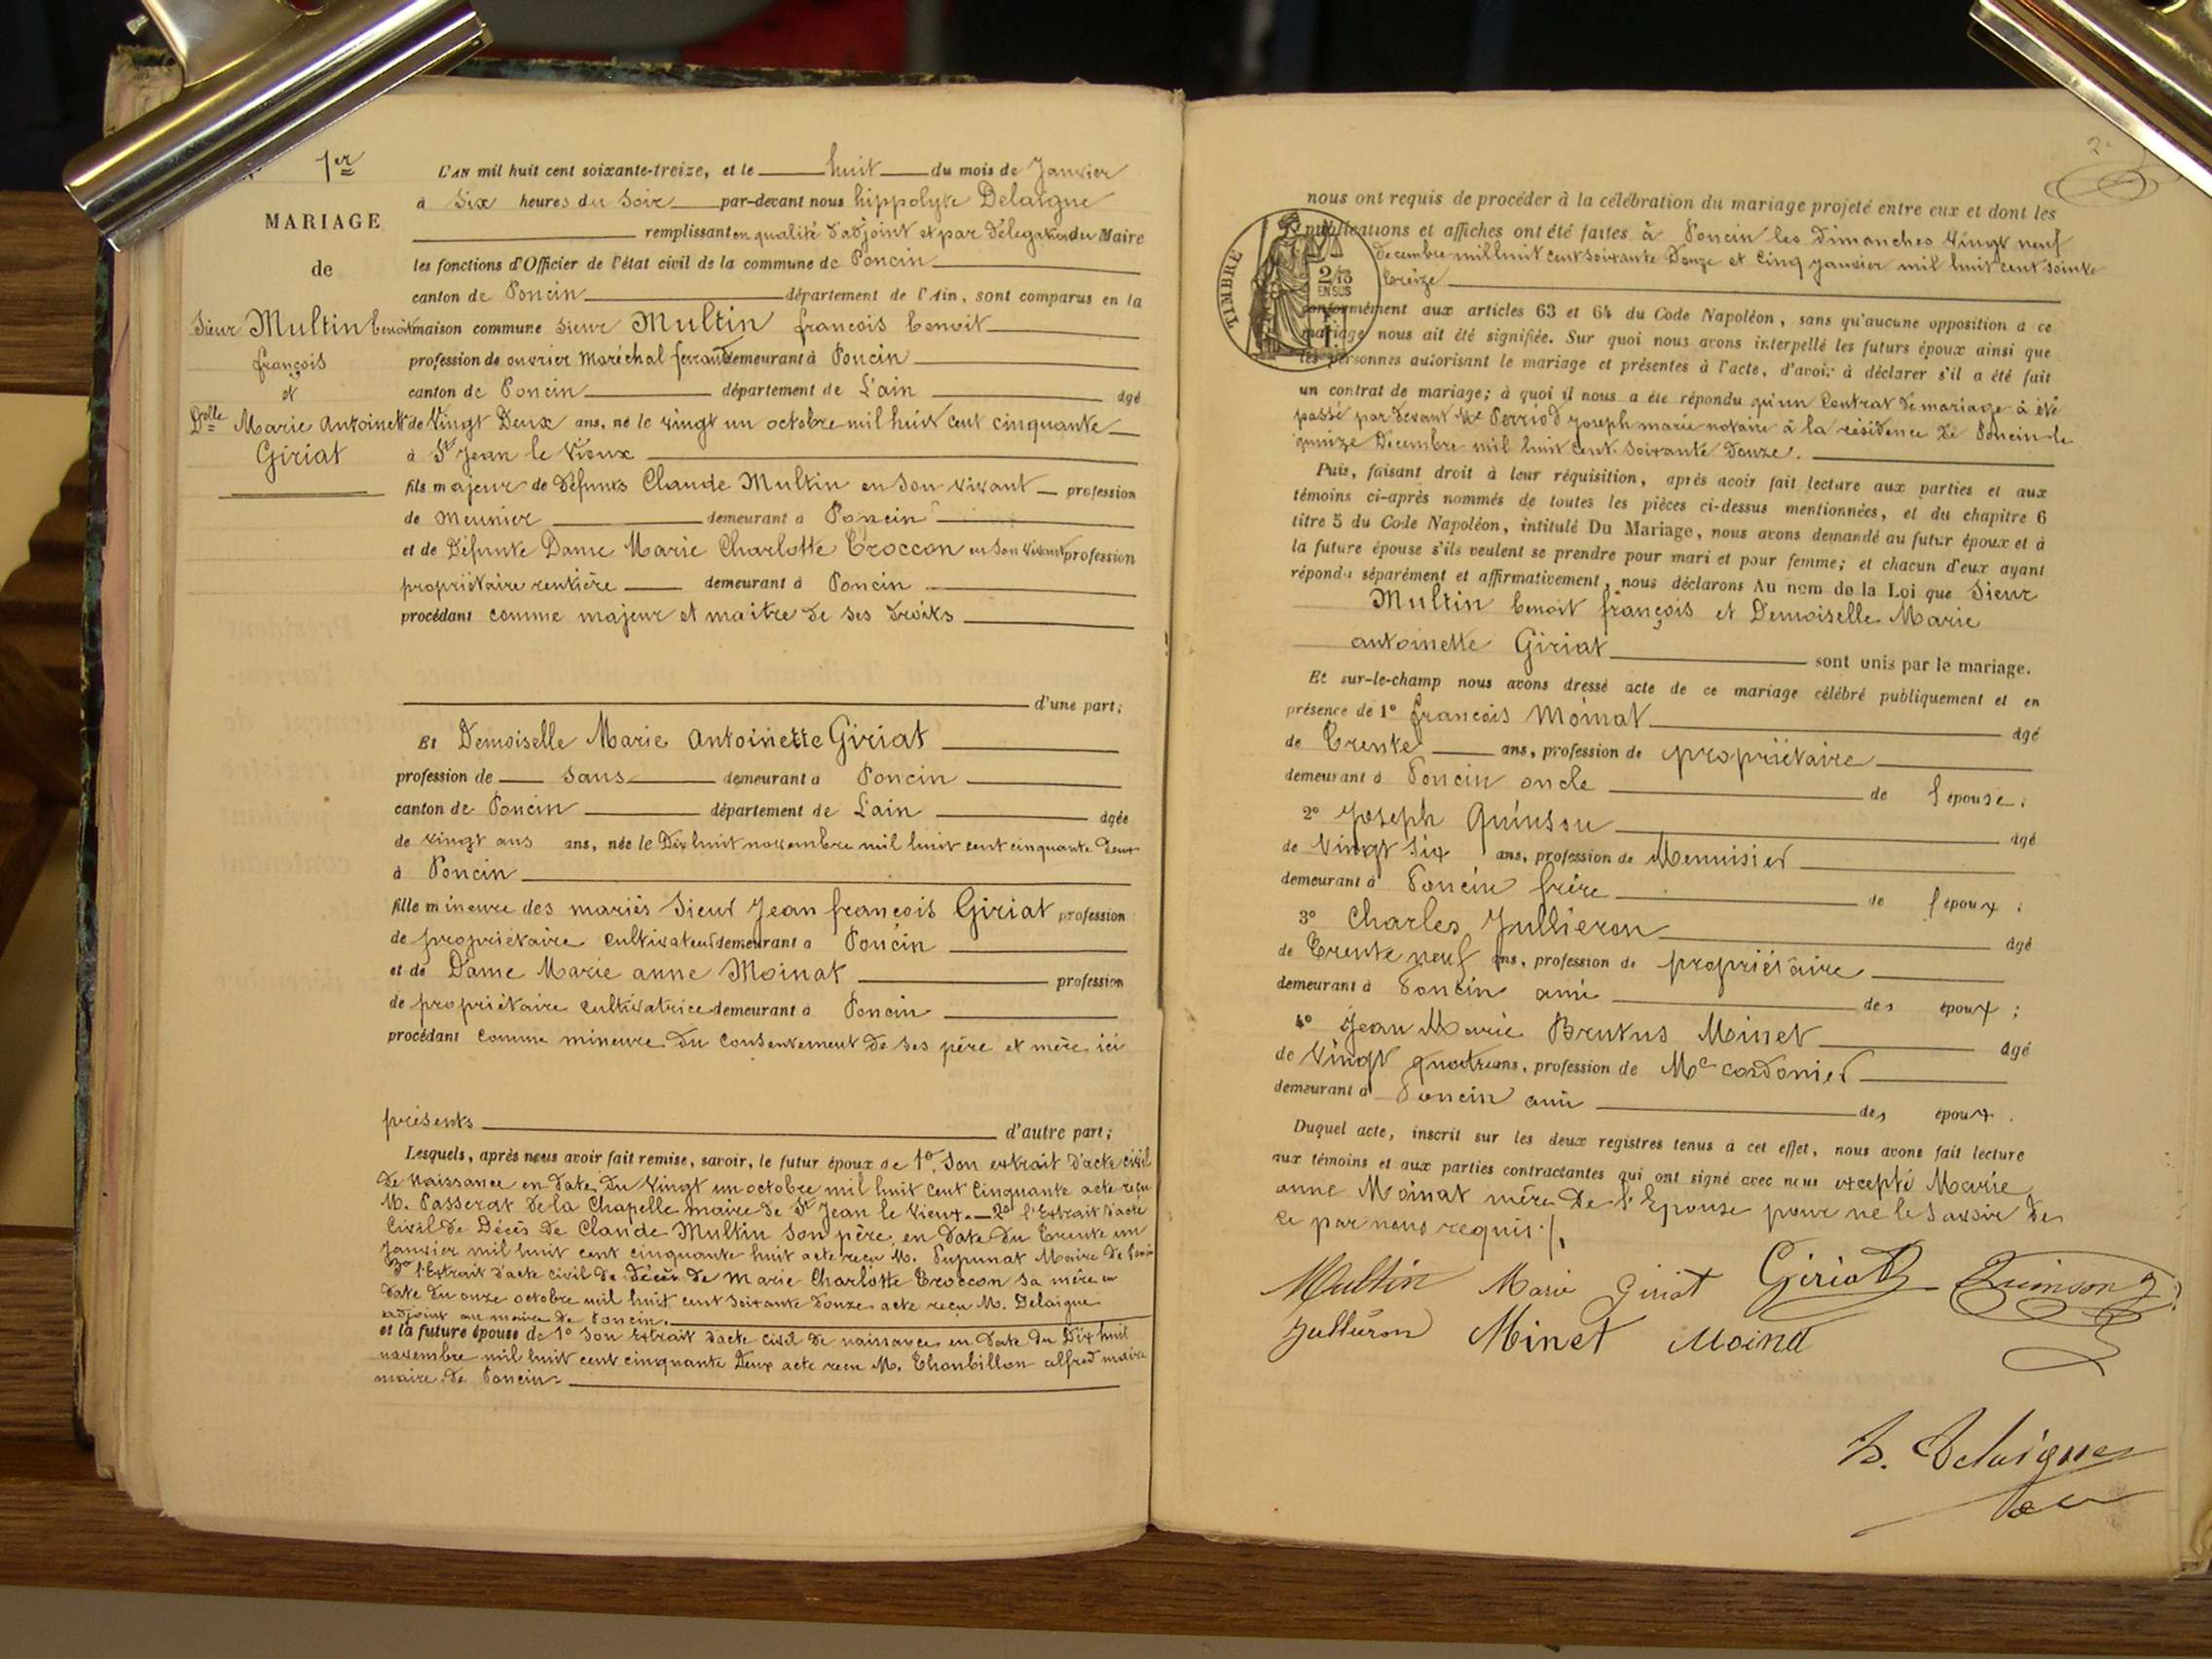 1er
MARIAGE
de
Sieur Multin benoit
françois
et
Dlle Marie Antoinette
Giriat
L'AN mil huit cent soixante-treize, et le huit du mois de Janvier
à Six heures du Soir par-devant nous hippolyte Delaigne
remplissant en qualité d'adjoint et par délégation du Maire
les fonctions d'Officier de l'état civil de la commune de Poncin
canton de Poncin département de l'Ain, sont comparus en la
maison commune Sieur Multin francois benoit
profession de ouvrier maréchal ferrant demeurant à Poncin
canton de Poncin département de L'ain âgé
de Vingt Deux ans, né le vingt un octobre mil huit cent cinquante
à St Jean le Vieux
fils majeur de Défunts Claude Multin en Son vivant profession
de meunier demeurant à Poncin
et de Défunte Dame Marie Charlotte Croccon en Son vivant profession
propriétaire rentière demeurant à Poncin
procédant comme majeur et maitre de ses droits
d'une part;
Et Demoiselle Marie Antoinette Giriat
profession de Sans demeurant à Poncin
canton de Poncin département de L'ain âgée
de vingt ans ans, née le Dix huit novembre mil huit cent cinquante deux
à Poncin
fille mineure des mariés Sieur Jean francois Giriat profession
de propriétaire cultivateur demeurant à Poncin
et de Dame Marie anne Moinat profession
de propriétaire cultivatrice demeurant à Poncin
procédant Comme mineure du Consentement de ses père et mère ici
présents d'autre part;
Lesquels, après nous avoir fait remise, savoir, le futur époux de 1o Son extrait d'acte civil
de naissance en date du vingt un octobre mil huit cent cinquante acte reçu
M. Passerat de la Chapelle maire de St Jean le Vieux. — 2o l'Extrait d'acte
Civil de Décès de Claude Multin Son père, en date du trente un
Janvier mil huit cent cinquante huit acte reçu M. Pupunat Maire de
3o l'Extrait d'acte civil de décès de Marie Charlotte Croccon sa mère en
date du onze octobre mil huit cent soixante douze acte reçu M. Delaigne
adjoint au maire de Poncin.
et la future épouse de 1o Son Extrait d'acte civil de naissance en date du Dix huit
novembre mil huit cent cinquante Deux acte reçu M. Chonbillon alfred maire
maire de Poncin.
nous ont requis de procéder à la célébration du mariage projeté entre eux et dont les
publications et affiches ont été faites à Poncin les dimanches vingt neuf
décembre mil huit cent soixante Douze et Cinq janvier mil huit cent
treize
TIMBRE
2/10
EN SUS
conformément aux articles 63 et 64 du Code Napoléon, sans qu'aucune opposition à ce
mariage nous ait été signifiée. Sur quoi nous avons interpellé les futurs époux ainsi que
les personnes autorisant le mariage et présentes à l'acte, d'avoir à déclarer s'il a été fait
un contrat de mariage; à quoi il nous a été répondu qu'un Contrat de mariage à été
passé par devant Me Perriod joseph marie notaire à la résidence de Poncin le
quinze Décembre mil huit cent soixante douze.
Puis, faisant droit à leur réquisition, après avoir fait lecture aux parties et aux
témoins ci-après nommés de toutes les pièces ci-dessus mentionnées, et du chapitre 6
titre 5 du Code Napoléon, intitulé Du Mariage, nous avons demandé au futur époux et à
la future épouse s'ils veulent se prendre pour mari et pour femme; et chacun d'eux ayant
répondu séparément et affirmativement, nous déclarons Au nom de la Loi que Sieur
Multin benoit françois et Demoiselle Marie
antoinette Giriat sont unis par le mariage.
Et sur-le-champ nous avons dressé acte de ce mariage célébré publiquement et en
présence de 1o francois Moinat âgé
de trente ans, profession de propriétaire
demeurant à Poncin oncle de l'épouse;
2o Joseph Quinson âgé
de Vingt Six ans, profession de Menuisier
demeurant à Poncin frère de l'époux;
3o Charles Jullieron âgé
de trente neuf ans, profession de propriétaire
demeurant à Poncin ami des époux;
4o Jean Marie Brutus Minet âgé
de Vingt quatre ans, profession de Me cordonier
demeurant à Poncin ami des époux.
Duquel acte, inscrit sur les deux registres tenus à cet effet, nous avons fait lecture
aux témoins et aux parties contractantes qui ont signé avec nous excepté Marie
anne Moinat mère de l'Epouse pour ne le Savoir de
ce par nous requis./.
Multin Marie Giriat Giriat Quinson
Jullieron Minet Moinat
h. Delaigne